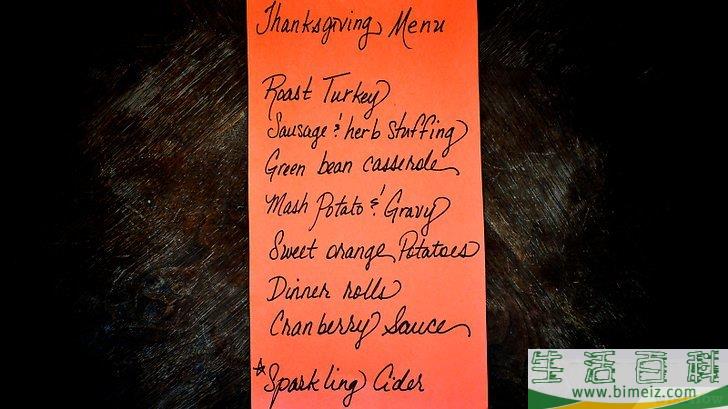 Thanksgiving Menu
Roast Turkey
Sausage & herb stuffing
Green bean casserole
Mash Potato & Gravy
Sweet orange Potatoes
Dinner rolls
Cranberry Sauce
☆Sparkling Cider
生活百科
www.bimeiz.com